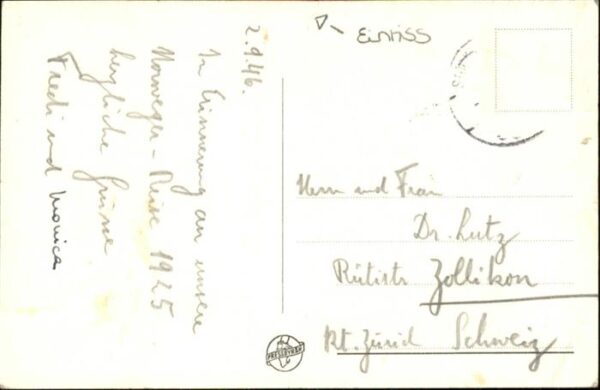 2.9.46.
In Erinnerung an unsere
Norweger-Reise 1925
herzliche Grüsse
Fredi und Monica
Einriss
Herrn und Frau
Dr. Lutz
Rütistr Zollikon
Kt. Zürich Schweiz